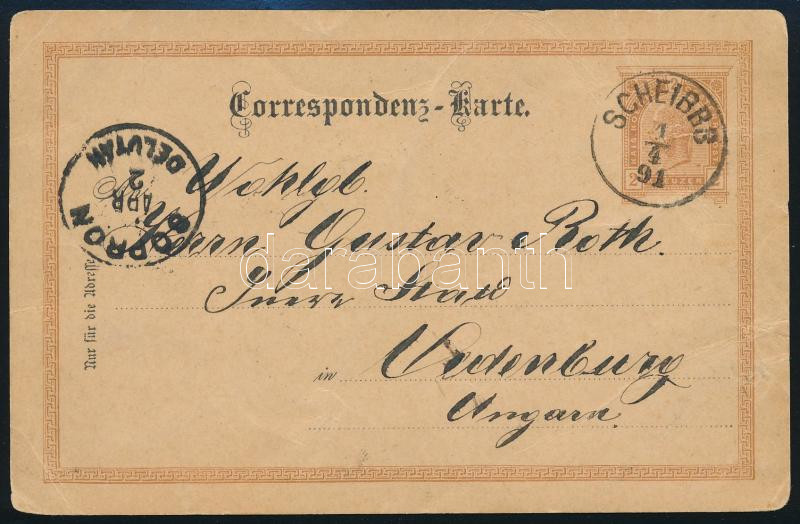 Correspondenz-Karte.
SCHEIBBS
1/4
91
2 KREUZER 2
SOPRON
APR
2
DELUTÁN
Wohlgb.
Herrn Gustav Roth
Innere Stad
in Oedenburg
Ungarn
Nur für die Adresse
darabanth